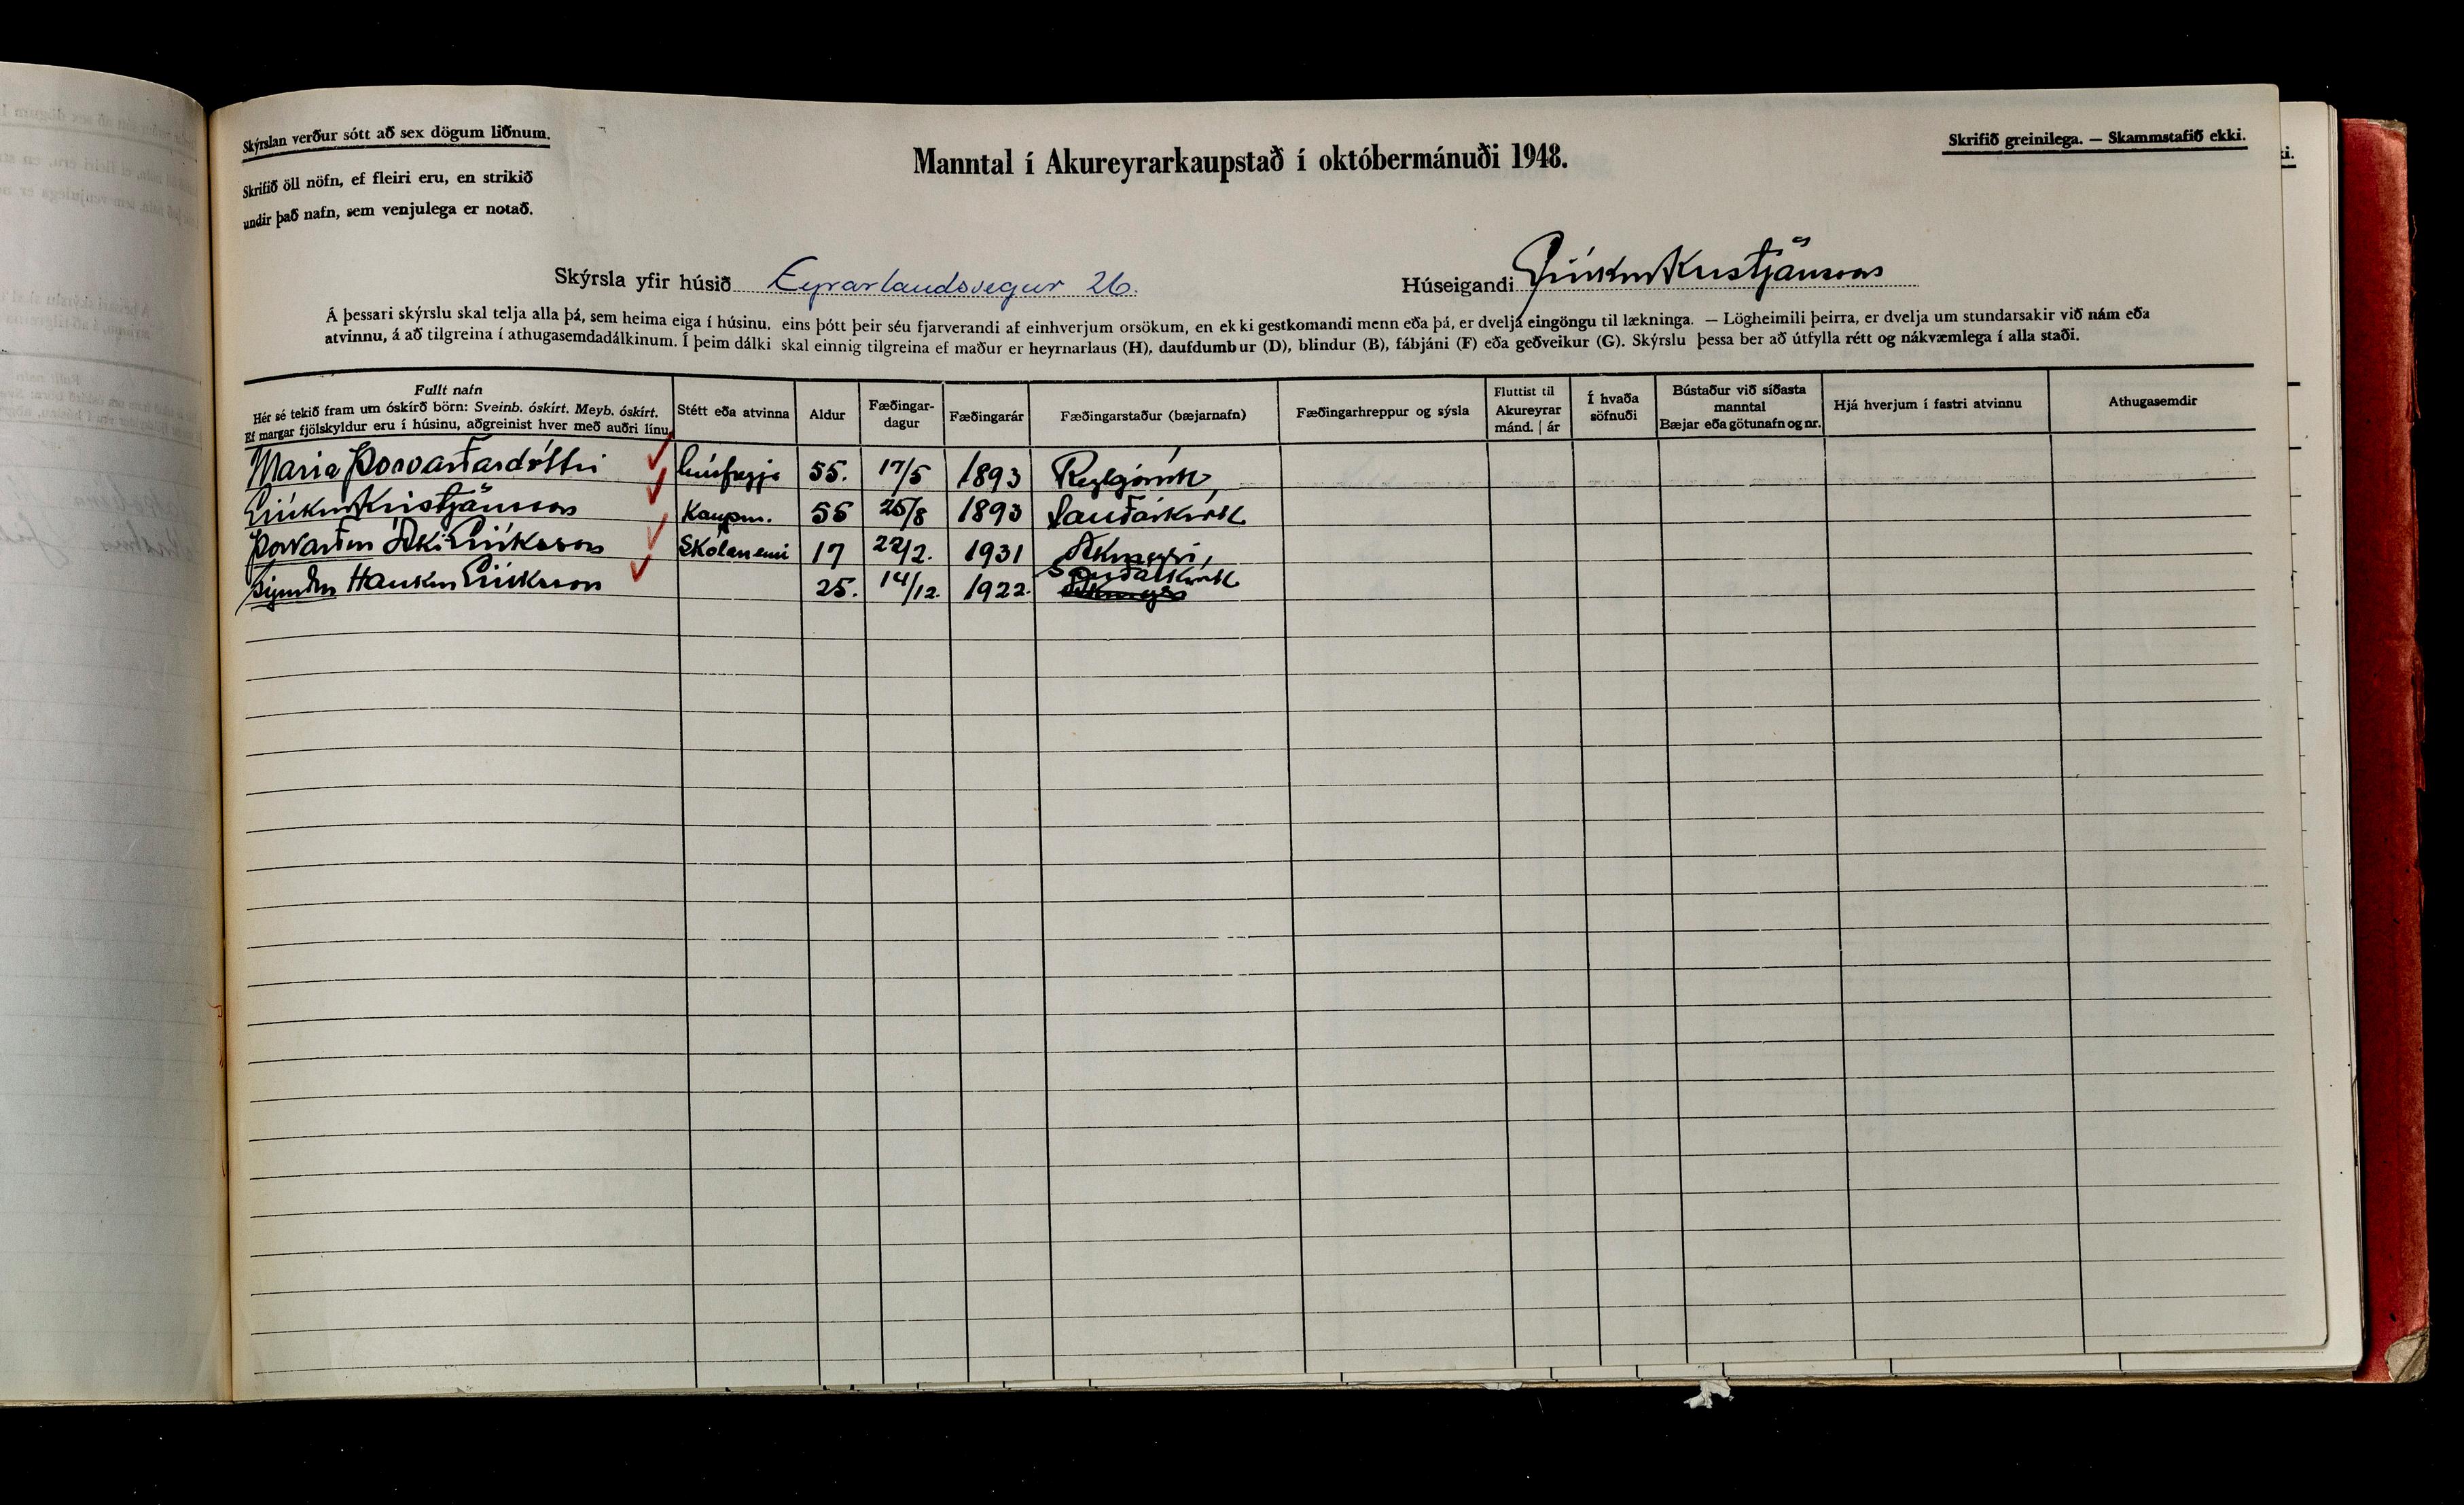 Skýrslan verður sótt að sex dögum liðnum.
Skrifið öll nöfn, ef fleiri eru, en strikið
undir það nafn, sem venjulega er notað.
Manntal í Akureyrarkaupstað í októbermánuði 1948.
Skrifið greinilega. — Skammstafið ekki.
Skýrsla yfir húsið Eyrarlandsvegur 26.
Húseigandi Eiríkur Kristjánsson
Á þessari skýrslu skal telja alla þá, sem heima eiga í húsinu, eins þótt þeir séu fjarverandi af einhverjum orsökum, en ekki gestkomandi menn eða þá, er dvelja eingöngu til lækninga. — Lögheimili þeirra, er dvelja um stundarsakir við nám eða
atvinnu, á að tilgreina í athugasemdadálkinum. Í þeim dálki skal einnig tilgreina ef maður er heyrnarlaus (H), daufdumbur (D), blindur (B), fábjáni (F) eða geðveikur (G). Skýrslu þessa ber að útfylla rétt og nákvæmlega í alla staði.
Fullt nafn
Hér sé tekið fram um óskírð börn: Sveinb. óskírt. Meyb. óskírt.
Ef margar fjölskyldur eru í húsinu, aðgreinist hver með auðri línu.
Stétt eða atvinna
Aldur
Fæðingar-
dagur
Fæðingarár
Fæðingarstaður (bæjarnafn)
Fæðingarhreppur og sýsla
Fluttist til
Akureyrar
mánd. | ár
Í hvaða
söfnuði
Bústaður við síðasta
manntal
Bæjar eða götunafn og nr.
Hjá hverjum í fastri atvinnu
Athugasemdir
Maria Þorvarðardóttir húsfreyja 55. 17/5 1893 Reykjavík
Eiríkur Kristjánsson Kaupm. 55 25/8 1893 Sauðárkrók
Þorvarður Áki Eiríksson Skólanemi 17 22/2. 1931 Akureyri
Sigurður Haukur Eiríksson 25. 14/12. 1922. Sauðárkrók